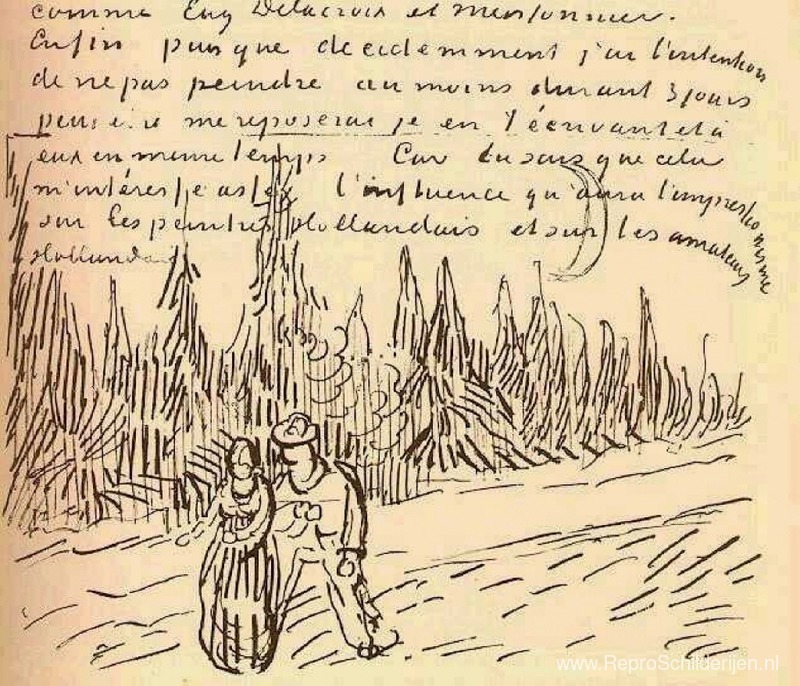 comme Eug Delacroix et Meissonnier.
Enfin puisque decidemment j'ai l'intention
de ne pas peindre au moins durant 3 jours
peut etre me reposerai je en t'écrivant et à
eux en meme temps Car tu sais que cela
m'intéresse assez l'influence qu'aura l'impressionisme
sur les peintres Hollandais et sur les amateurs
Hollandais
www.ReproSchilderijen.nl